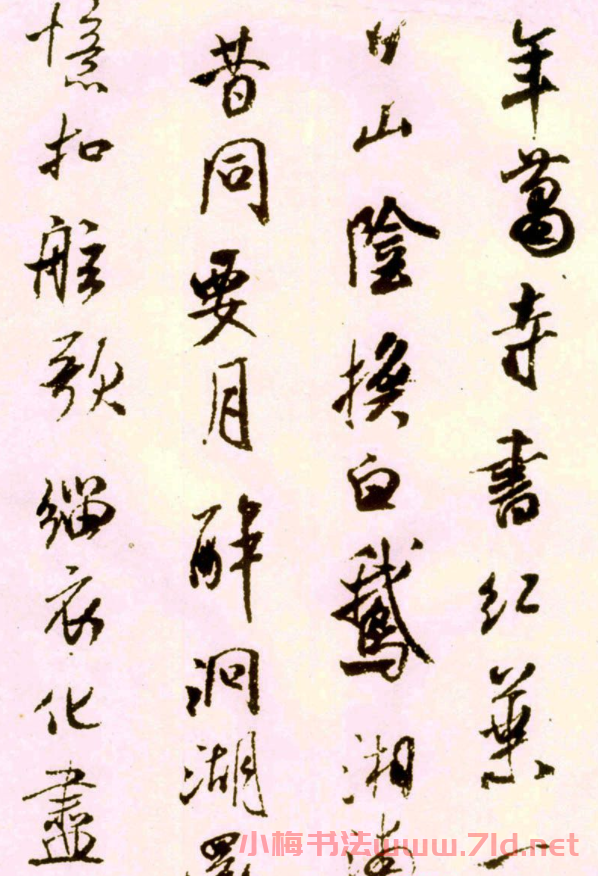 年萬寺書紅葉一
日山陰換白鵝湘
昔同要月醉洞湖還
憶扣舷歌緇衣化盡
小梅书法www.7ld.net